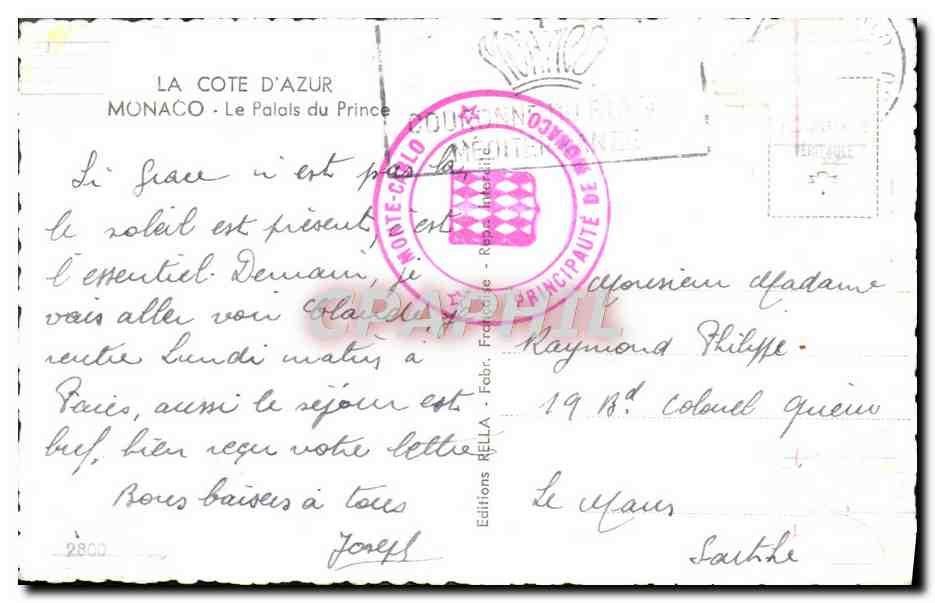 LA COTE D'AZUR
MONACO - Le Palais du Prince
Si Grace n'est pas là,
le soleil est présent, c'est
l'essentiel. Demain, je
vais aller voir Claude, je
rentre Lundi matin à
Paris, aussi le séjour est
bref, bien reçu votre lettre
Bons baisers à tous
Joseph
2800
Editions RELLA - Fabr. Française - Repr. Interdite
MONACO
MONTE-CARLO
PRINCIPAUTÉ DE MONACO
VERITABLE
CPAPHIL
Monsieur Madame
Raymond Philippe.
19 Bd. Colonel
Le Mans
Sarthe